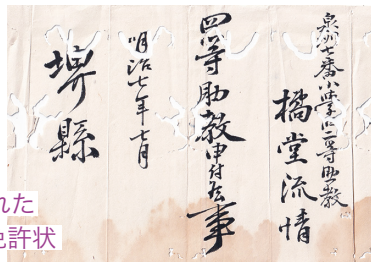 泉州七番小学江二等助教
橘堂流情
四等助教申付候事
明治七年七月
堺縣
れた
免許状